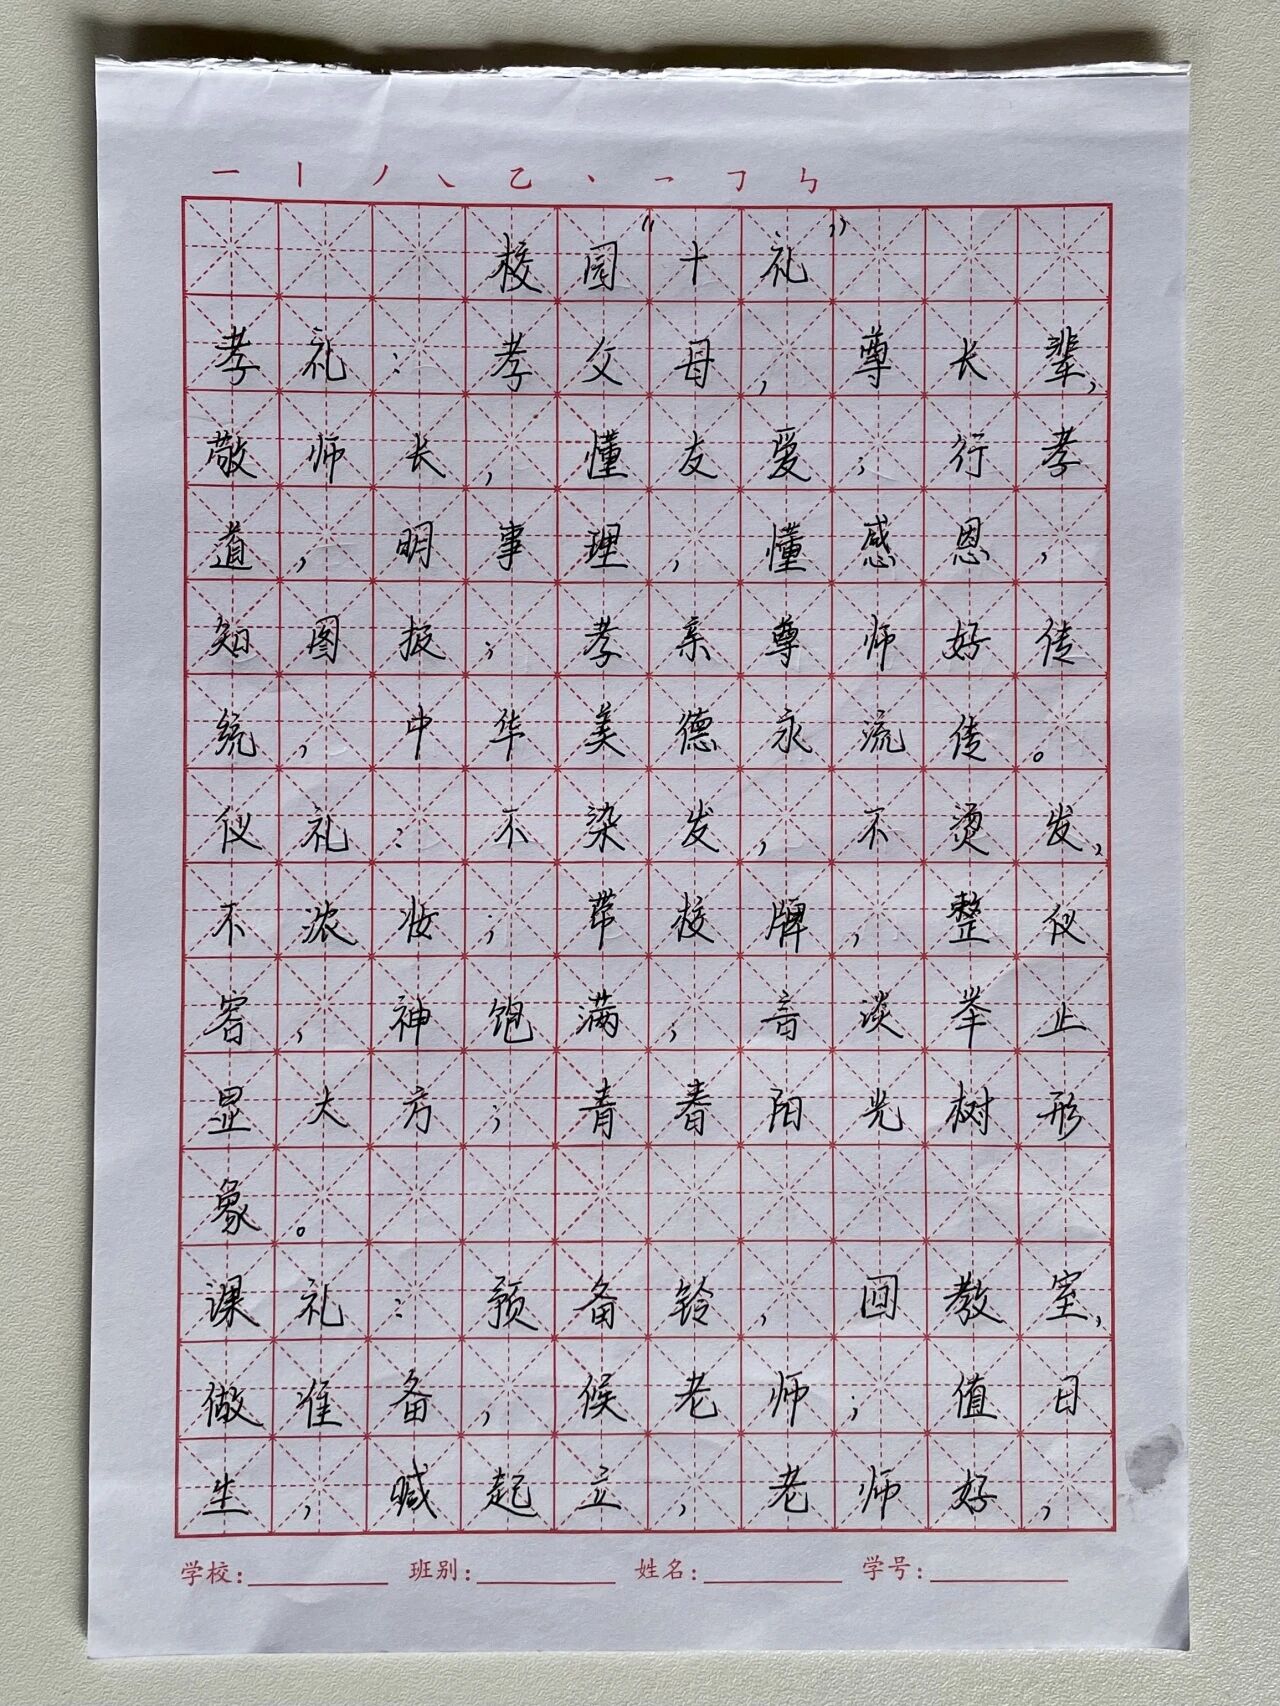 一丨丿㇏乙丶㇀㇆ㄣ
校园“十礼”
孝礼：孝父母，尊长辈，
敬师长，懂友爱；行孝
道，明事理，懂感恩，
知图报；孝亲尊师好传
统，中华美德永流传。
仪礼：不染发，不烫发，
不浓妆；带校牌，整仪
容，神饱满，音谈举止
显大方；青春阳光树形
象。
课礼：预备铃，回教室，
做准备，候老师；值日
生，喊起立，老师好，
学校：　班别：　姓名：　学号：